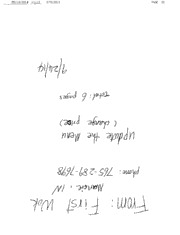 From: First Wok
Muncie, IN
phone: 765-289-7678
update the Menu
(change price)
total: 6 pages
9/24/14